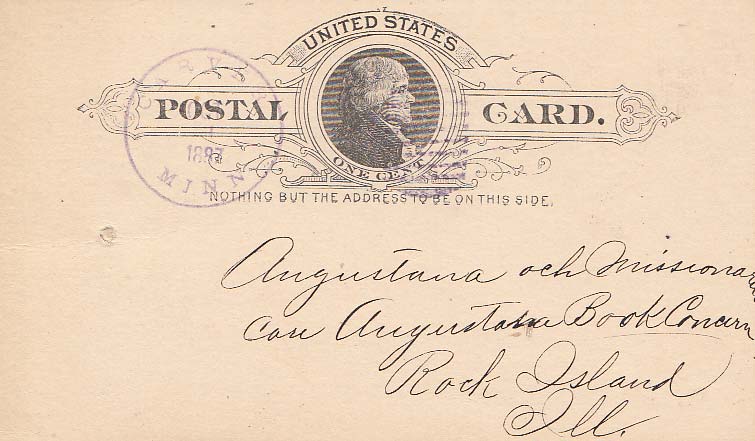 UNITED STATES
POSTAL CARD.
ONE CENT
CARVER
1887
MINN.
NOTHING BUT THE ADDRESS TO BE ON THIS SIDE.
Augustana och Missionaren
care Augustana Book Concern
Rock Island
Ill.